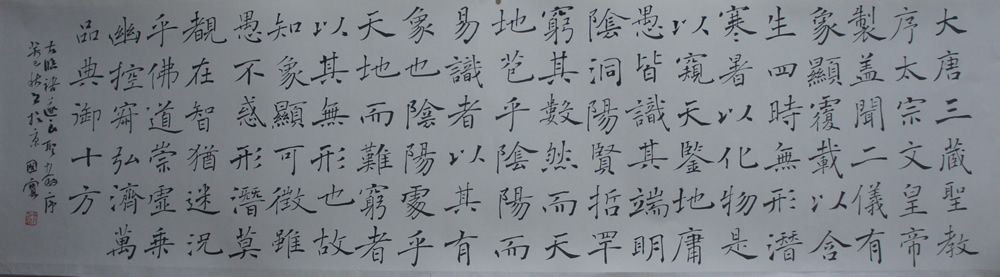 大唐三藏聖教
序太宗文皇帝
製盖聞二儀有
象顯覆載以含
生四時無形潛
寒暑以化物是
以窺天鑒地庸
愚皆識其端明
陰洞陽賢哲罕
窮其數然而天
地苞乎陰陽而
易識者以其有
象也陰陽處乎
天地而難窮者
以其無形也故
知象顯可徵雖
愚不惑形潛莫
覩在智猶迷況
乎佛道崇虛乘
幽控寂弘濟萬
品典御十方
右臨褚遂良序
國雲